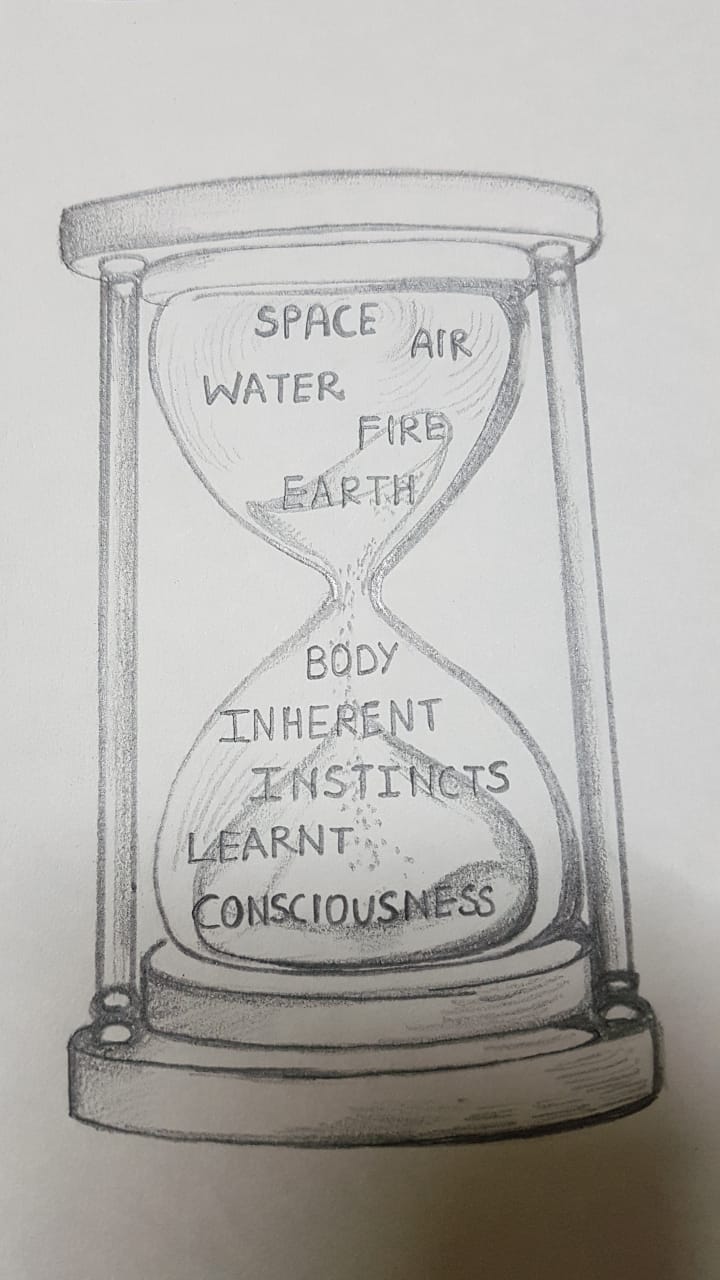 SPACE
AIR
WATER
FIRE
EARTH
BODY
INHERENT
INSTINCTS
LEARNT
CONSCIOUSNESS